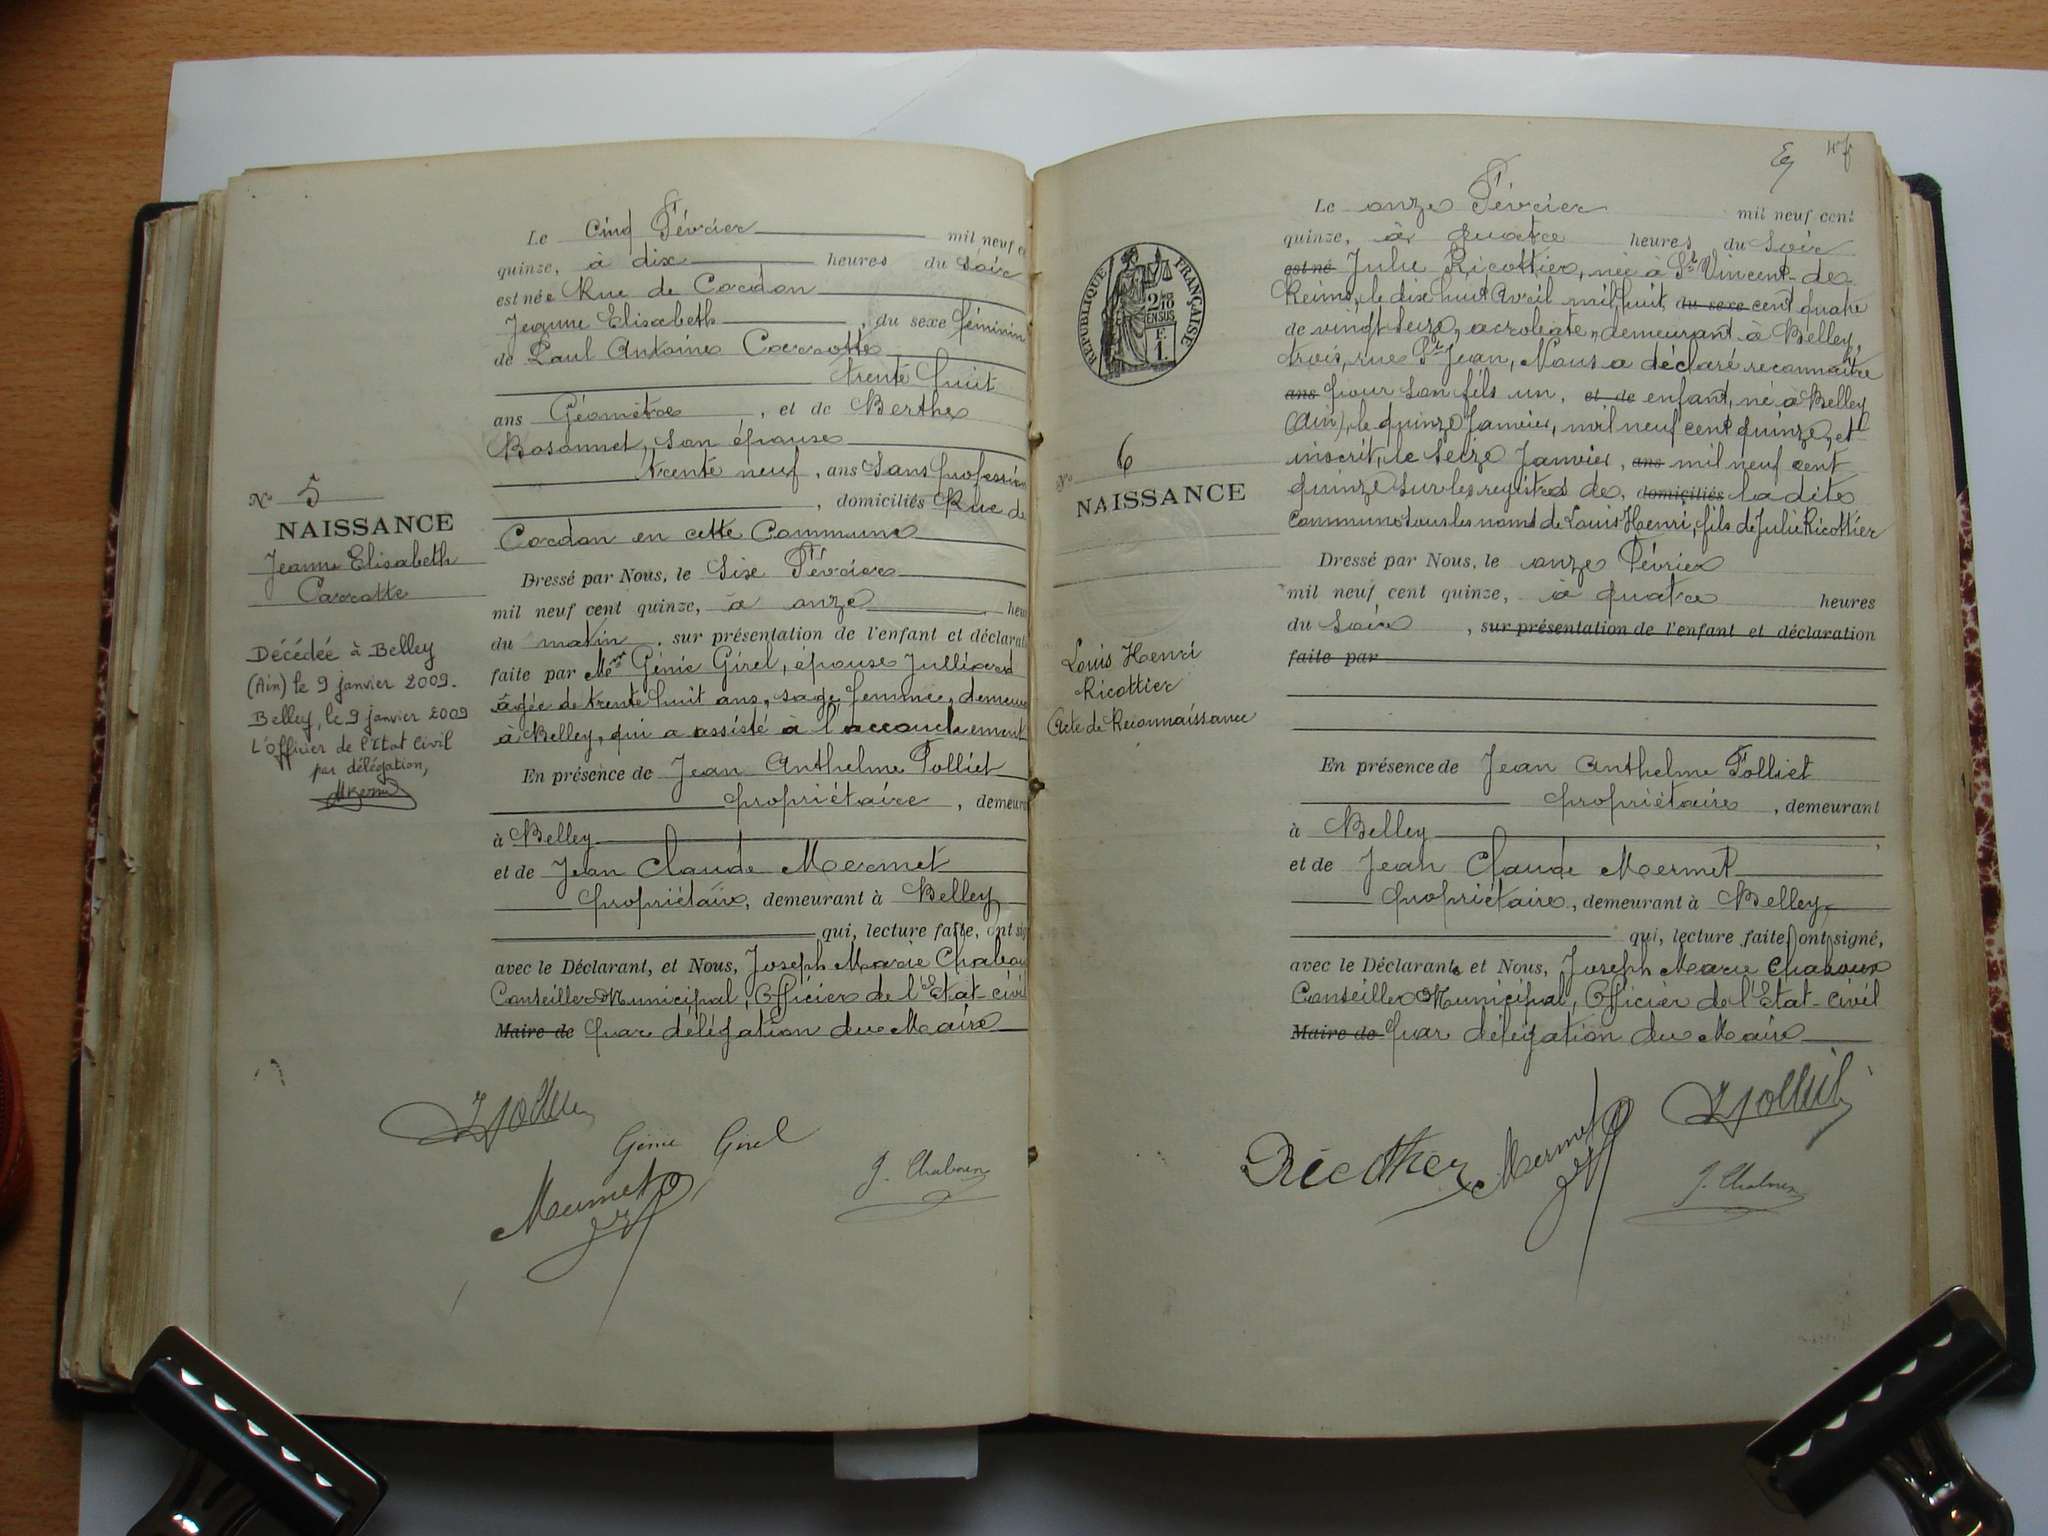 Le cinq Février mil neuf
quinze, à dix heures du soir
est née Rue de Cordon
Jeanne Elisabeth, du sexe féminin
de Paul Antoine Carrotte
trente huit
ans Géomètre, et de Berthe
Bosonnet, son épouse
trente neuf, ans Sans profession
, domiciliés Rue de
Cordon en cette Commune
Dressé par Nous, le Six Février
mil neuf cent quinze, à onze heu
du matin, sur présentation de l'enfant et déclarat
faite par Génie Girel, épouse Julliard
âgée de trente huit ans, sage femme, demeu
à Belley, qui a assisté à l'accouchement
En présence de Jean Anthelme Folliet
propriétaire, demeura
à Belley
et de Jean Claude Mermet
propriétaire, demeurant à Belley
qui, lecture faite, ont sig
avec le Déclarant, et Nous, Joseph Marie Chaboux
Conseiller Municipal, Officier de l'Etat-civil
Maire de par délégation du Maire
N° 5
NAISSANCE
Jeanne Elisabeth
Carrotte
Décédée à Belley
(Ain) le 9 janvier 2009.
Belley, le 9 janvier 2009
L'officier de l'Etat Civil
par délégation,
Génie Girel
Mermet
J. Chaboux
Le onze Février mil neuf cent
quinze, à quatre heures du soir
est né Julie Ricottier, née à St Vincent de
Reins, le dix huit Avril mil huit du sexe cent quatre
de vingt seize, acrobate, demeurant à Belley,
trois, rue St Jean, Nous a déclaré reconnaître
ans pour son fils un, et de enfant, né à Belley
(Ain), le quinze Janvier, mil neuf cent quinze, et
inscrit, le seize Janvier, ans mil neuf cent
quinze sur les registres de, domiciliés la dite
Commune sous les noms de Louis Henri, fils de Julie Ricottier
Dressé par Nous, le onze Février
mil neuf cent quinze, à quatre heures
du soir, sur présentation de l'enfant et déclaration
faite par
En présence de Jean Anthelme Folliet
propriétaire, demeurant
à Belley
et de Jean Claude Mermet
propriétaire, demeurant à Belley
qui, lecture faite, ont signé,
avec le Déclarant, et Nous, Joseph Marie Chaboux
Conseiller Municipal, Officier de l'Etat-civil
Maire de par délégation du Maire
RÉPUBLIQUE FRANÇAISE
2/10
EN SUS
1 F.
N° 6
NAISSANCE
Louis Henri
Ricottier
Acte de Reconnaissance
Folliet
Ricottier Mermet
J. Chaboux